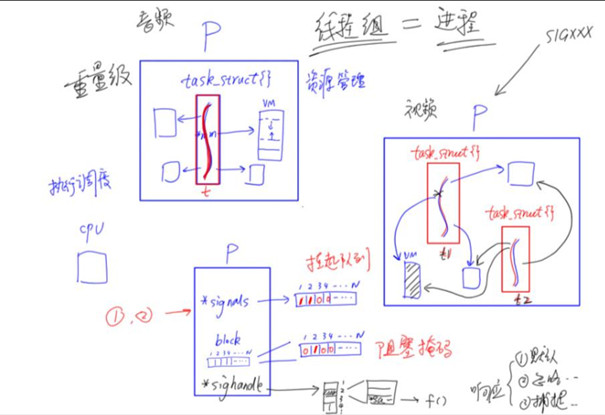 音频
线程组 = 进程
SIGXXX
P
重量级
task_struct{}
资源管理
VM
t
视频
P
task_struct{}
task_struct{}
VM
t1
t2
执行调度
CPU
P
挂起队列
1 2 3 4 ... N
*signals
①,②
block
1 2 3 4 ... N
1 2 3 4 ... N
0 1 0 0
阻塞掩码
*sighandle
1
2
3
4
f()
响应
①默认
②忽略...
③捕捉...